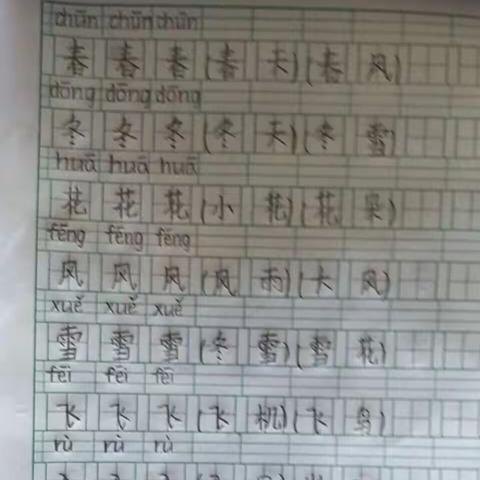 chūn chūn chūn
春 春 春 (春 天) (春 风)
dōng dōng dōng
冬 冬 冬 (冬 天) (冬 雪)
huā huā huā
花 花 花 (小 花) (花 朵)
fēng fēng fēng
风 风 风 (风 雨) (大 风)
xuě xuě xuě
雪 雪 雪 (冬 雪) (雪 花)
fēi fēi fēi
飞 飞 飞 (飞 机) (飞 鸟)
rù rù rù